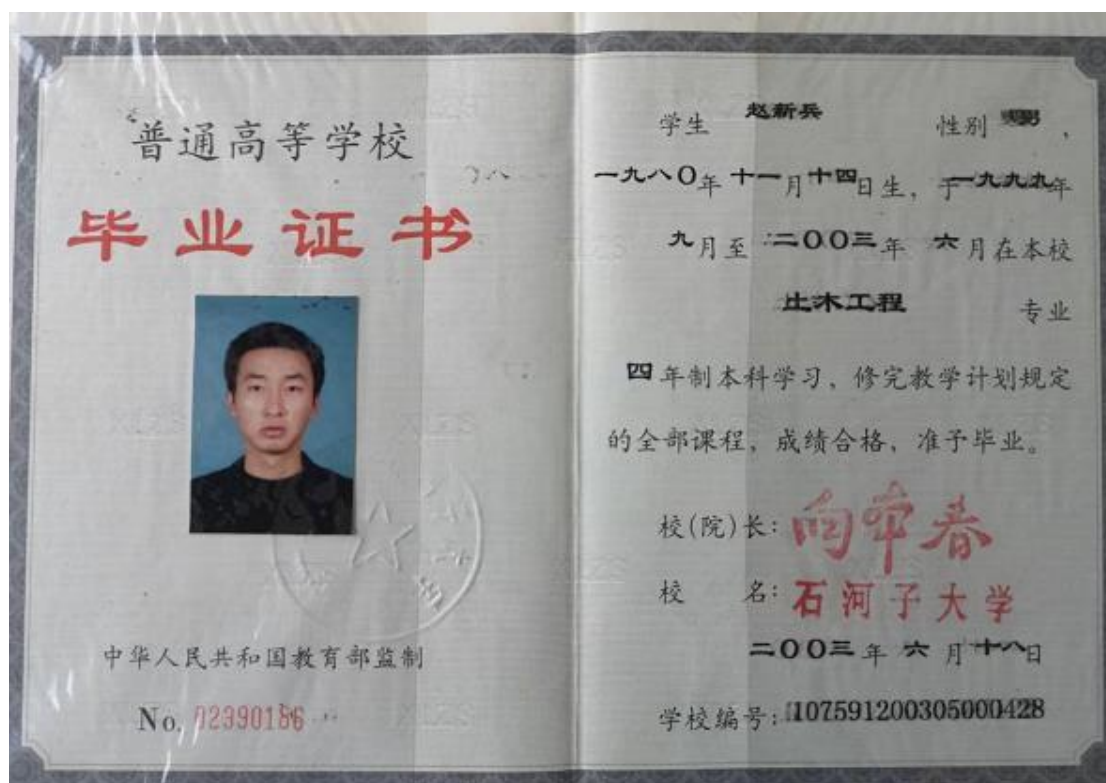 普通高等学校
毕业证书
中华人民共和国教育部监制
No. 02390186
学生 赵新兵 性别 男,
一九八〇年十一月十四日生, 于一九九九年
九月至二〇〇三年六月在本校
土木工程 专业
四年制本科学习, 修完教学计划规定
的全部课程, 成绩合格, 准予毕业。
校(院)长:
校 名: 石河子大学
二〇〇三年六月十八日
学校编号: 107591200305000428